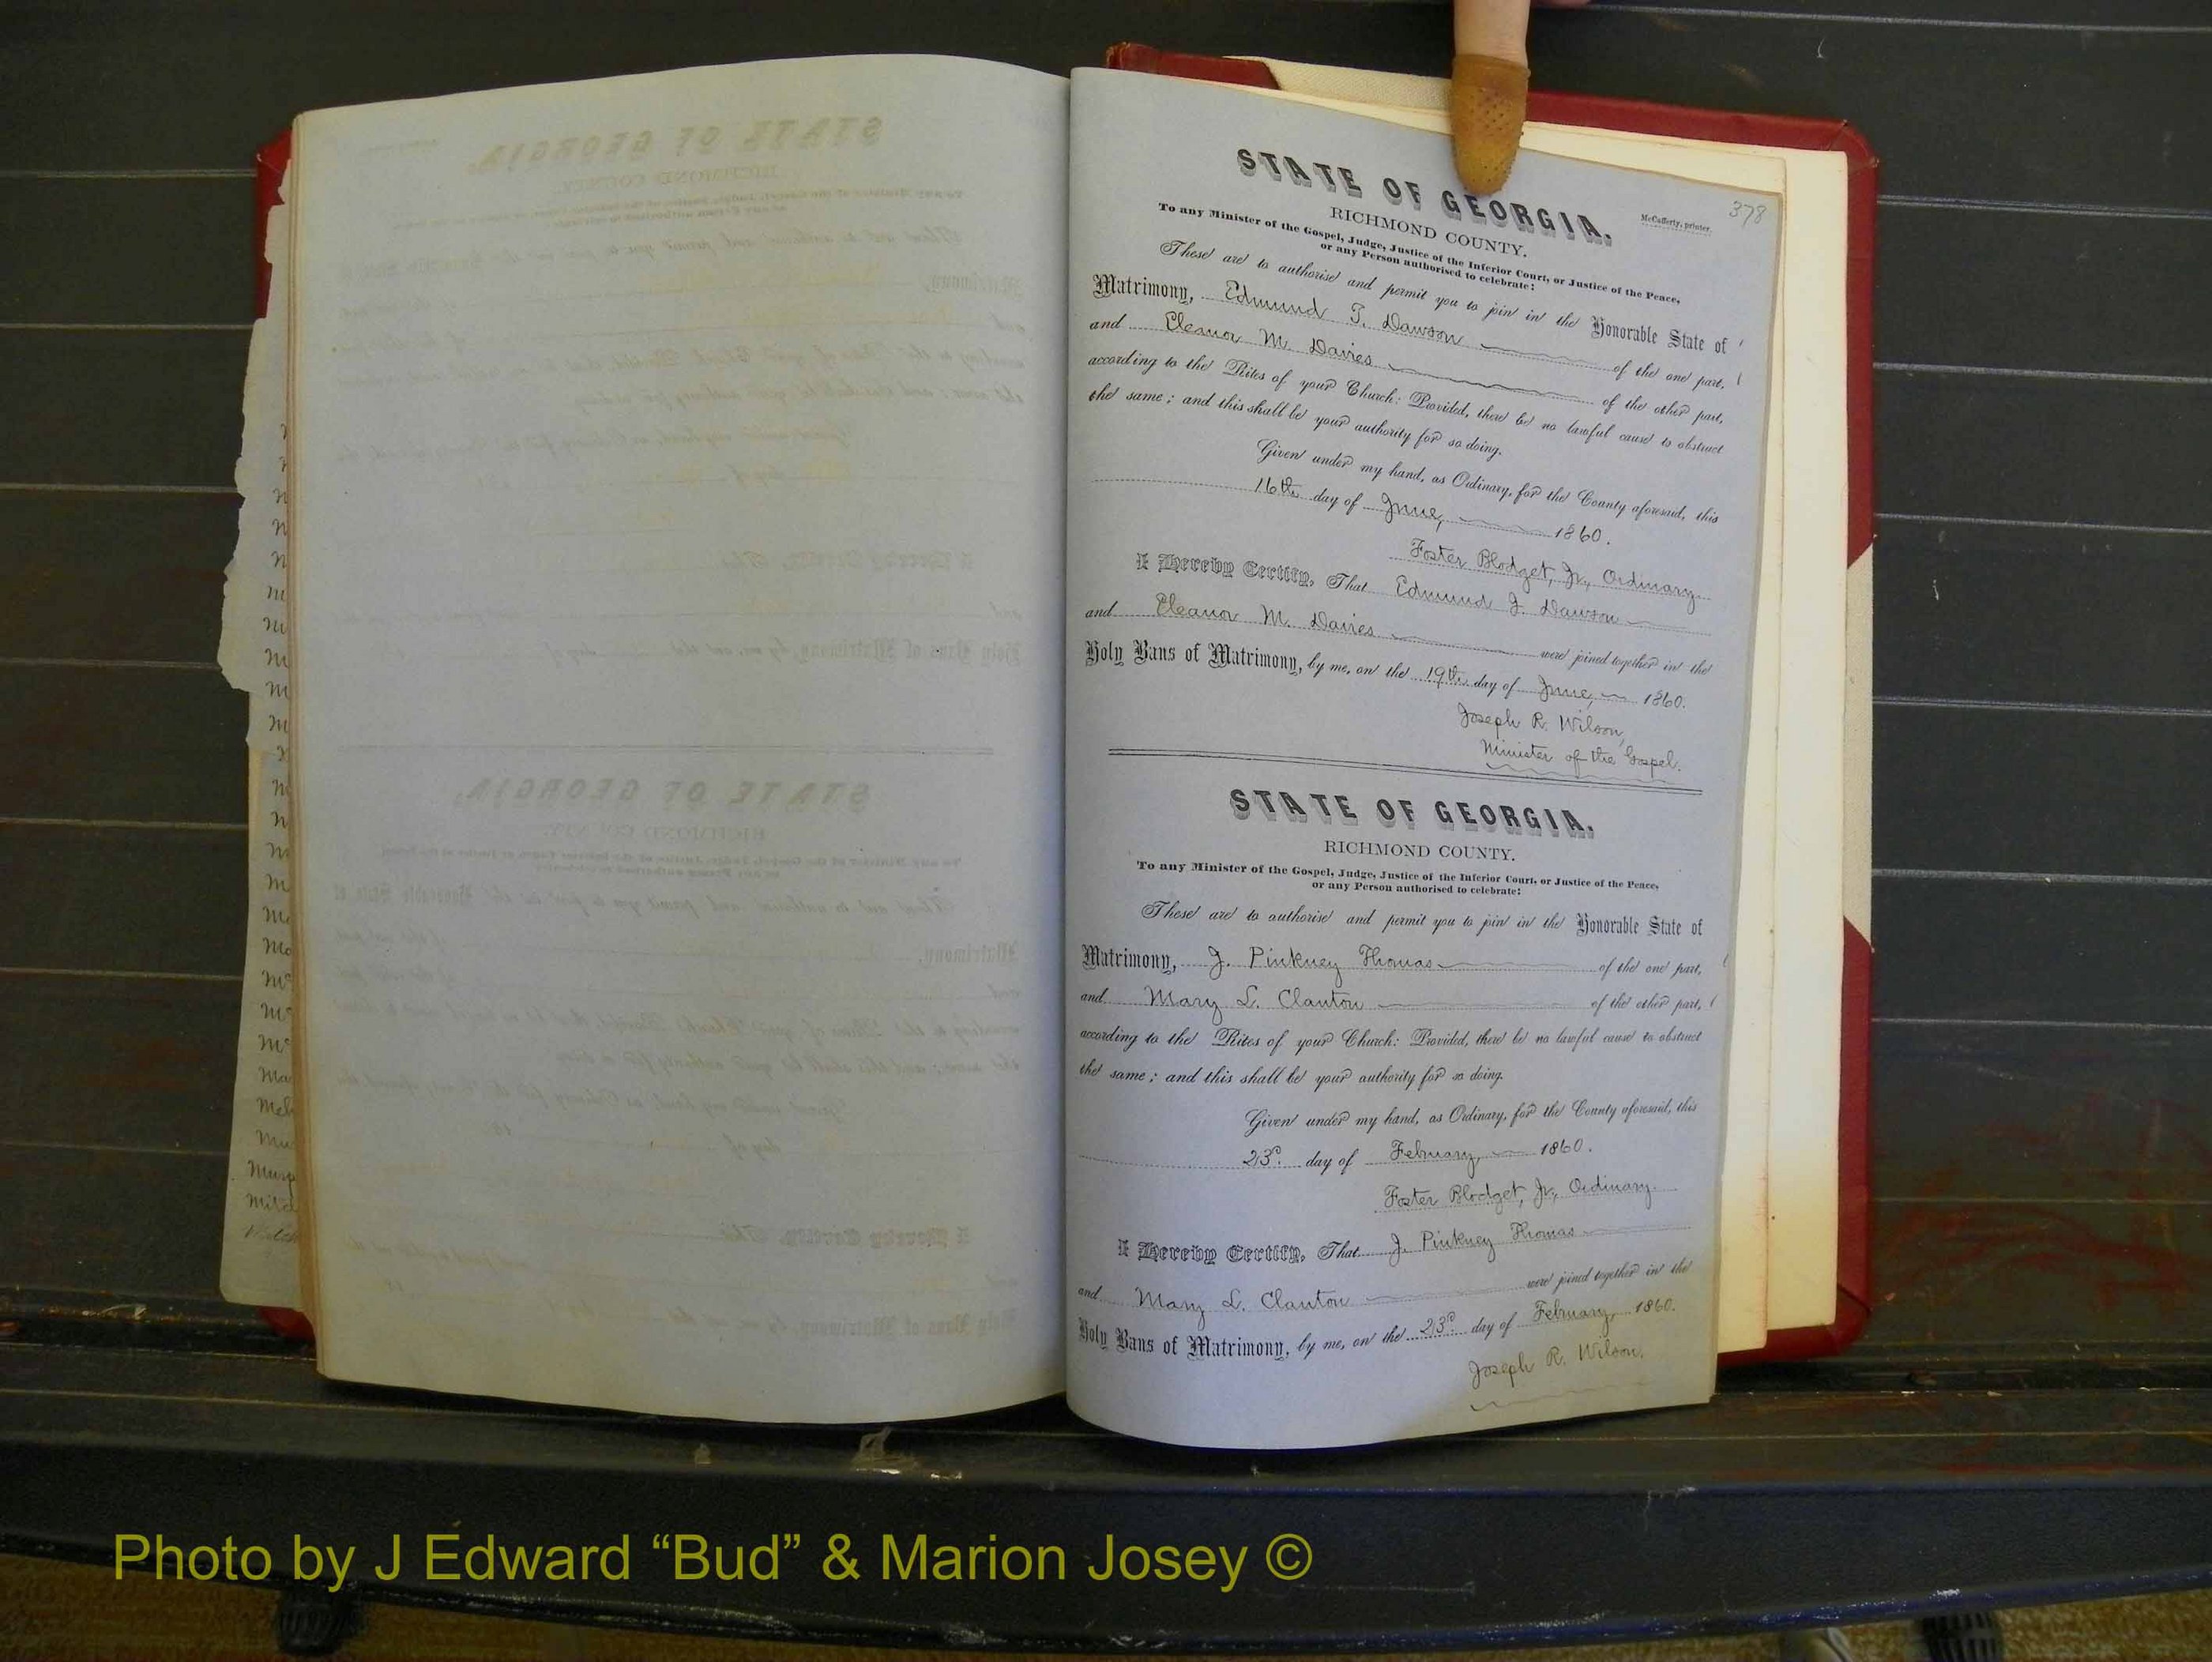 378
STATE OF GEORGIA.
McCafferty, printer.
RICHMOND COUNTY.
To any Minister of the Gospel, Judge, Justice of the Inferior Court, or Justice of the Peace,
or any Person authorised to celebrate:
These are to authorise and permit you to join in the Honorable State of
Matrimony, Edmund T. Dawson of the one part,
and Eleanor M. Davies of the other part,
according to the Rites of your Church: Provided, there be no lawful cause to obstruct
the same; and this shall be your authority for so doing.
Given under my hand, as Ordinary, for the County aforesaid, this
16th day of June, 1860.
Foster Blodget, Jr., Ordinary.
I Hereby Certify, That Edmund J. Dawson
and Eleanor M. Davies were joined together in the
Holy Bans of Matrimony, by me, on the 19th day of June, 1860.
Joseph R. Wilson,
Minister of the Gospel.
STATE OF GEORGIA.
RICHMOND COUNTY.
To any Minister of the Gospel, Judge, Justice of the Inferior Court, or Justice of the Peace,
or any Person authorised to celebrate:
These are to authorise and permit you to join in the Honorable State of
Matrimony, J. Pinkney Thomas of the one part,
and Mary L. Clanton of the other part,
according to the Rites of your Church: Provided, there be no lawful cause to obstruct
the same; and this shall be your authority for so doing.
Given under my hand, as Ordinary, for the County aforesaid, this
23d. day of February, 1860.
Foster Blodget, Jr., Ordinary.
I Hereby Certify, That J. Pinkney Thomas
and Mary L. Clanton were joined together in the
Holy Bans of Matrimony, by me, on the 23d. day of February, 1860.
Joseph R. Wilson.
Photo by J Edward “Bud” & Marion Josey ©